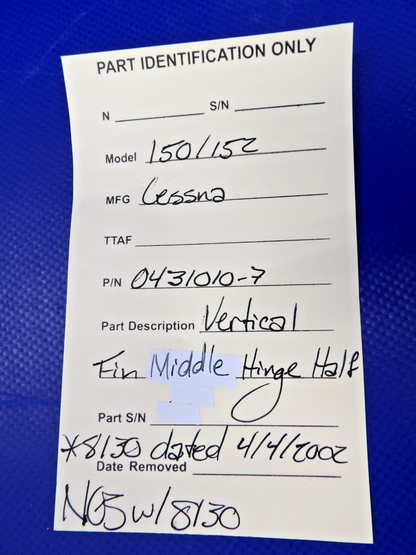 PART IDENTIFICATION ONLY
N S/N
Model 150/152
MFG Cessna
TTAF
P/N 0431010-7
Part Description Vertical
Fin Middle Hinge Half
Part S/N
*8130 dated 4/4/2002
Date Removed
NOS w/8130